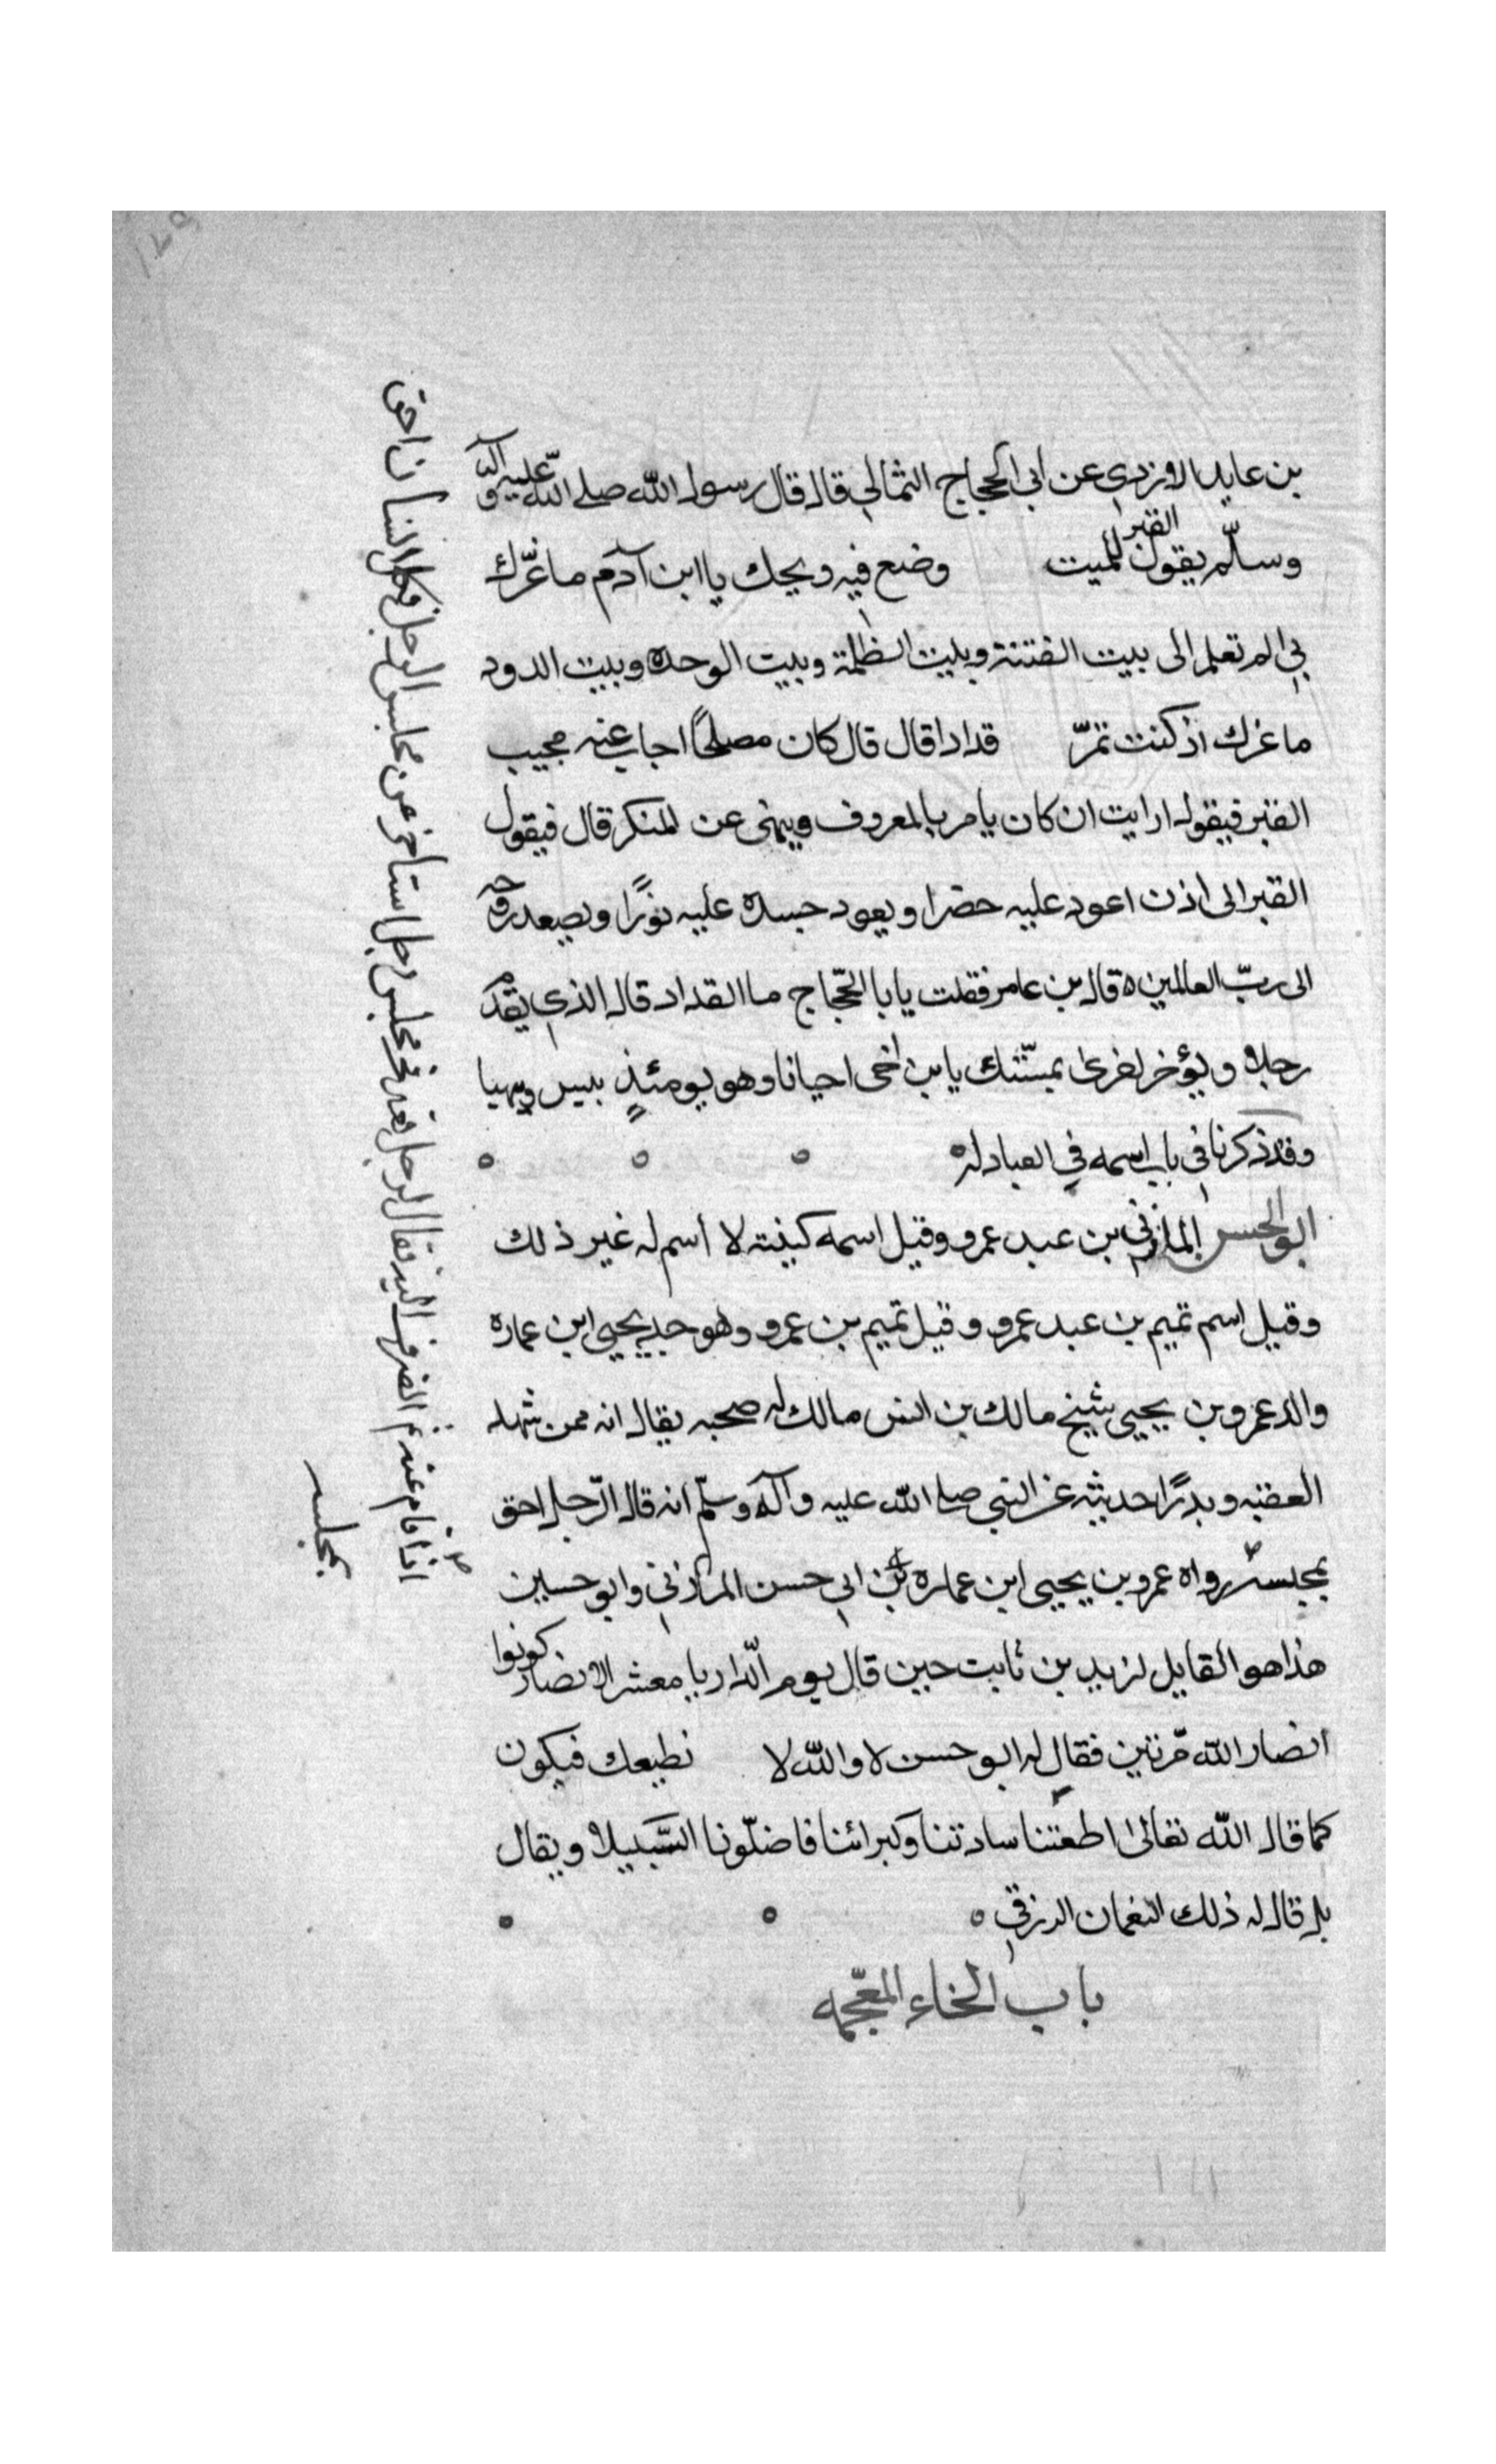 بن عايد الازدى عن ابى الحجاج الثمالي قال قال رسول الله صلى الله عليه وآله
وسلّم يقول القبر للميت وضع فيه ويحك يا ابن آدم ما غرّك
بي الم تعلم انى بيت الفتنة وبيت الظلمة وبيت الوحده وبيت الدود
ما غرك اذ كنت تمرّ قدادا قال قال كان مصلحًا اجاب عنه مجيب
القبر فيقول ارايت ان كان يامر بالمعروف وينهى عن المنكر قال فيقول
القبر انى اذن اعود عليه حضرا ويعود جسده عليه نورًا ويصعد روحه
الى ربّ العالمين ه قال بن عامر فقلت يابا الحجّاج ما القداد قال الذى يقدّم
رجلا ويؤخر اخرى يا بن اخى احيانا وهو يومئذٍ
وقد ذكرنا في باب اسمه في العبادله ه
ابو الحسن المازني بن عبد عمرو وقيل اسمه كنيته لا اسم له غير ذلك
وقيل اسم تميم بن عبد عمرو وقيل تميم بن عمرو وهو جد يحيى ابن عماره
والد عمرو بن يحيى شيخ مالك بن انس مالك له صحبه يقال انه ممن شهد
العقبه وبدرًا حديثه عن النبي صلى الله عليه وآله وسلّم انه قال الرّجل احق
بمجلسه رواه عمرو بن يحيى ابن عماره بن ابى حسن المازني وابو حسين
هذا هو القايل لزيد بن ثابت حين قال يوم الدّار يا معشر الانصار كونوا
انصار الله مرّتين فقال له ابو حسن لا والله لا نطيعك فيكون
كما قال الله تعالى اطعتنا سادتنا وكبرائنا فاضلّونا السّبيلا ويقال
بل قال له ذلك النعمان الزرقي ه
باب الخاء المعجمه
اذا قام عنه ثم انصرف اليه فقال لرجل قعد في مجلس رجل استاخر عن مجلس الرجل فكل انسان احق
بمجلسه